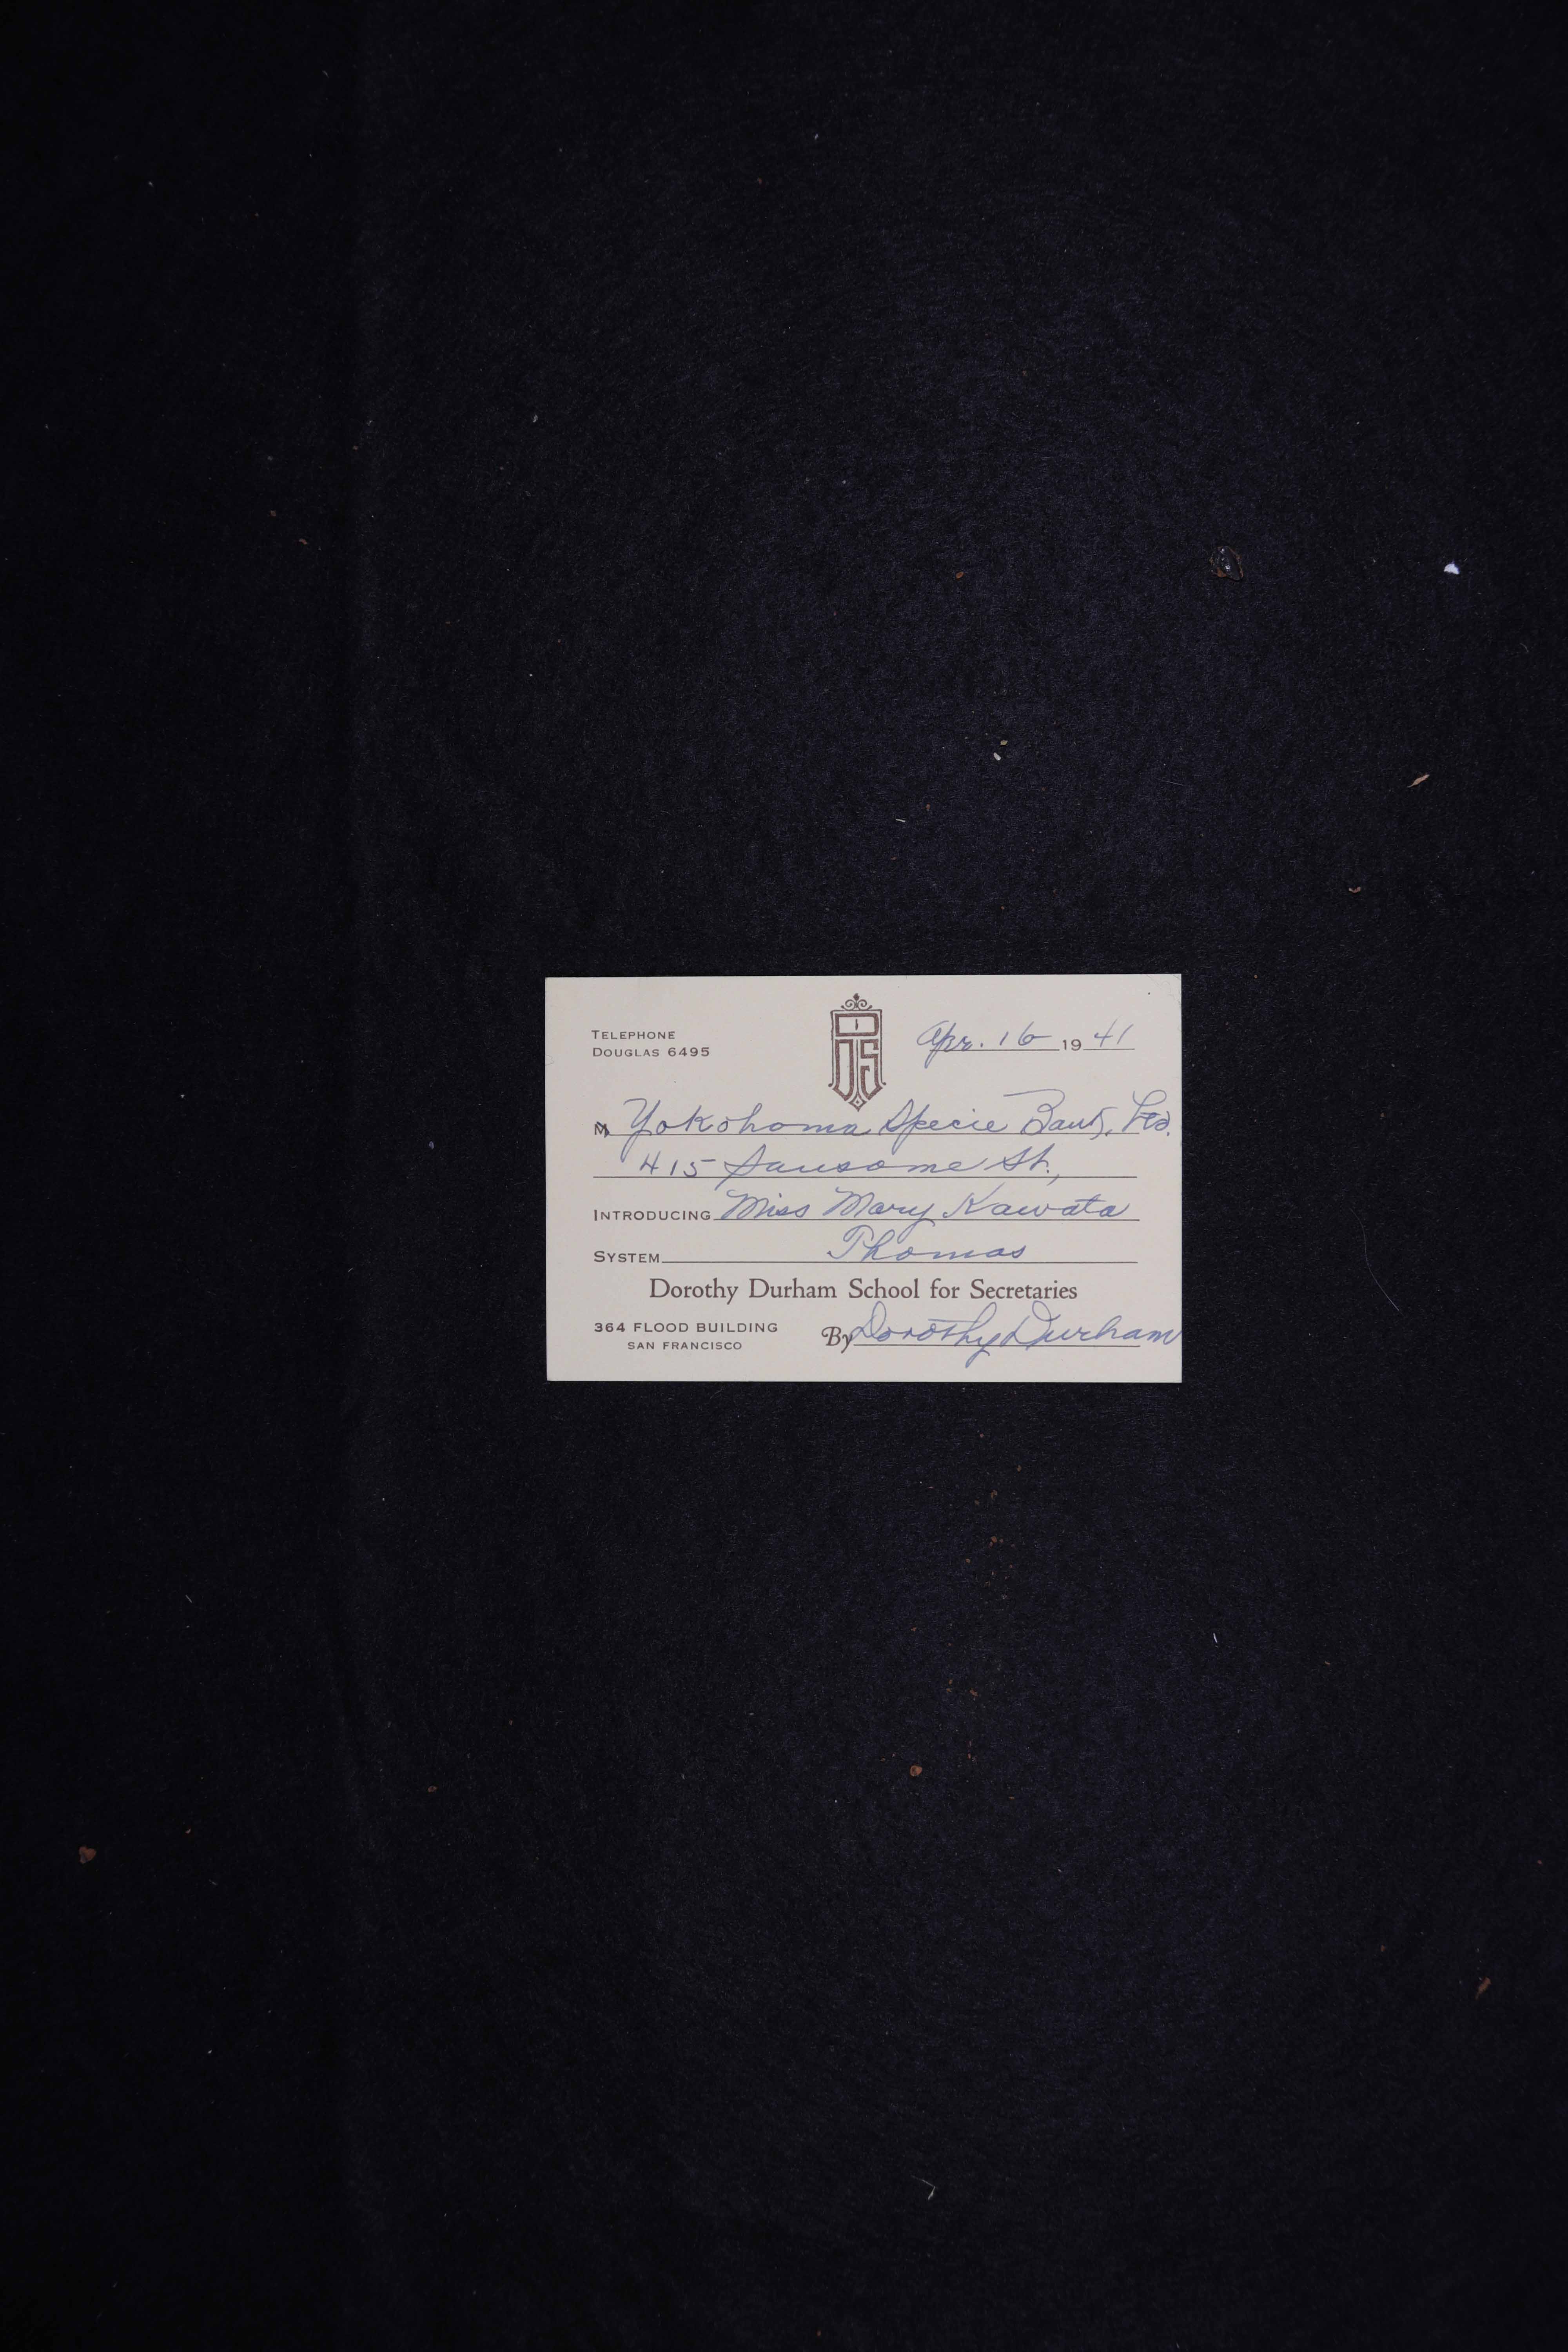 TELEPHONE
DOUGLAS 6495
DDS
Apr. 16 1941
M Yokohoma Specie Bank, Ltd.
415 Sansome St.,
INTRODUCING Miss Mary Kawata
SYSTEM Thomas
Dorothy Durham School for Secretaries
364 FLOOD BUILDING
SAN FRANCISCO
By Dorothy Durham